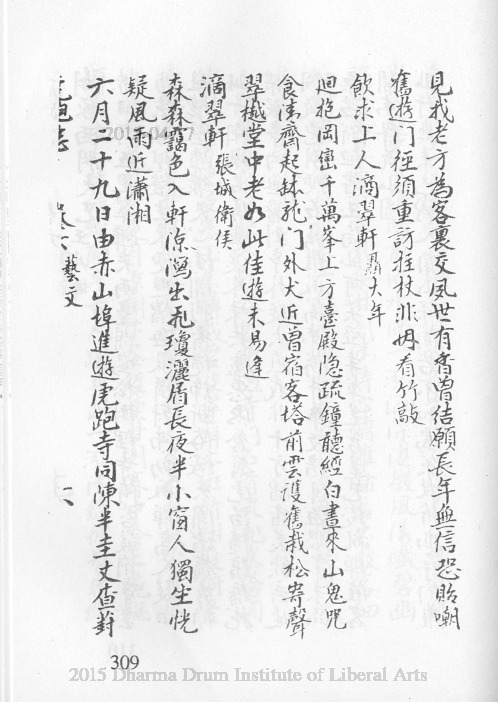 見我老方為客裏交夙世有香曽结願長年無信恐貽嘲
舊遊门徑須重訪拄杖非毋看竹敲
飲求上人滴翠軒 聶大年
廻抱岡巒千萬峯上方臺殿隐疏鐘聽經白晝來山鬼咒
食清齋起鉢龍门外犬近曽宿客塔前雲護舊栽松寄聲
翠樾堂中老如此佳遊未易逢
滴翠軒 張城衛侯
森森露色入軒涼瀉出飛瓊灑眉長夜半小窗人獨坐恍
疑風雨近瀟湘
六月二十九日由赤山埠進遊虎跑寺同陳半圭丈查葑
藝文
2015/04/17
309
2015 Dharma Drum Institute of Liberal Arts